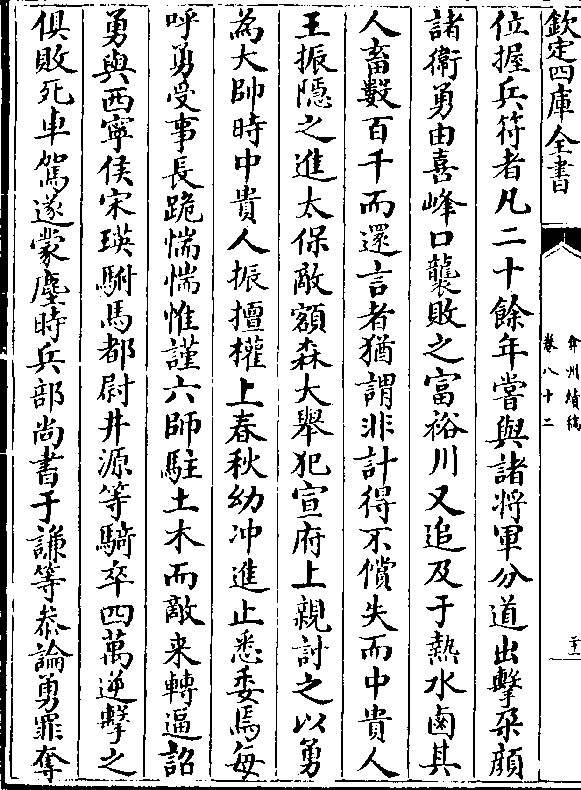 欽定四庫全書
弇州續稿
卷八十二
位握兵符者凡二十餘年嘗與諸將軍分道出擊朶顔
諸衞勇由喜峰口襲敗之富裕川又追及于熱水鹵其
人畜數百千而還言者猶謂非計得不償失而中貴人
王振隱之進太保敵額森大舉犯宣府上親討之以勇
為大帥時中貴人振擅權上春秋幼冲進止悉委焉每
呼勇受事長跪惴惴惟謹六師駐土木而敵来轉逼詔
勇與西寧侯宋瑛駙馬都尉井源等騎卒四萬逆擊之
俱敗死車駕遂蒙塵時兵部尚書于謙等叅論勇罪奪